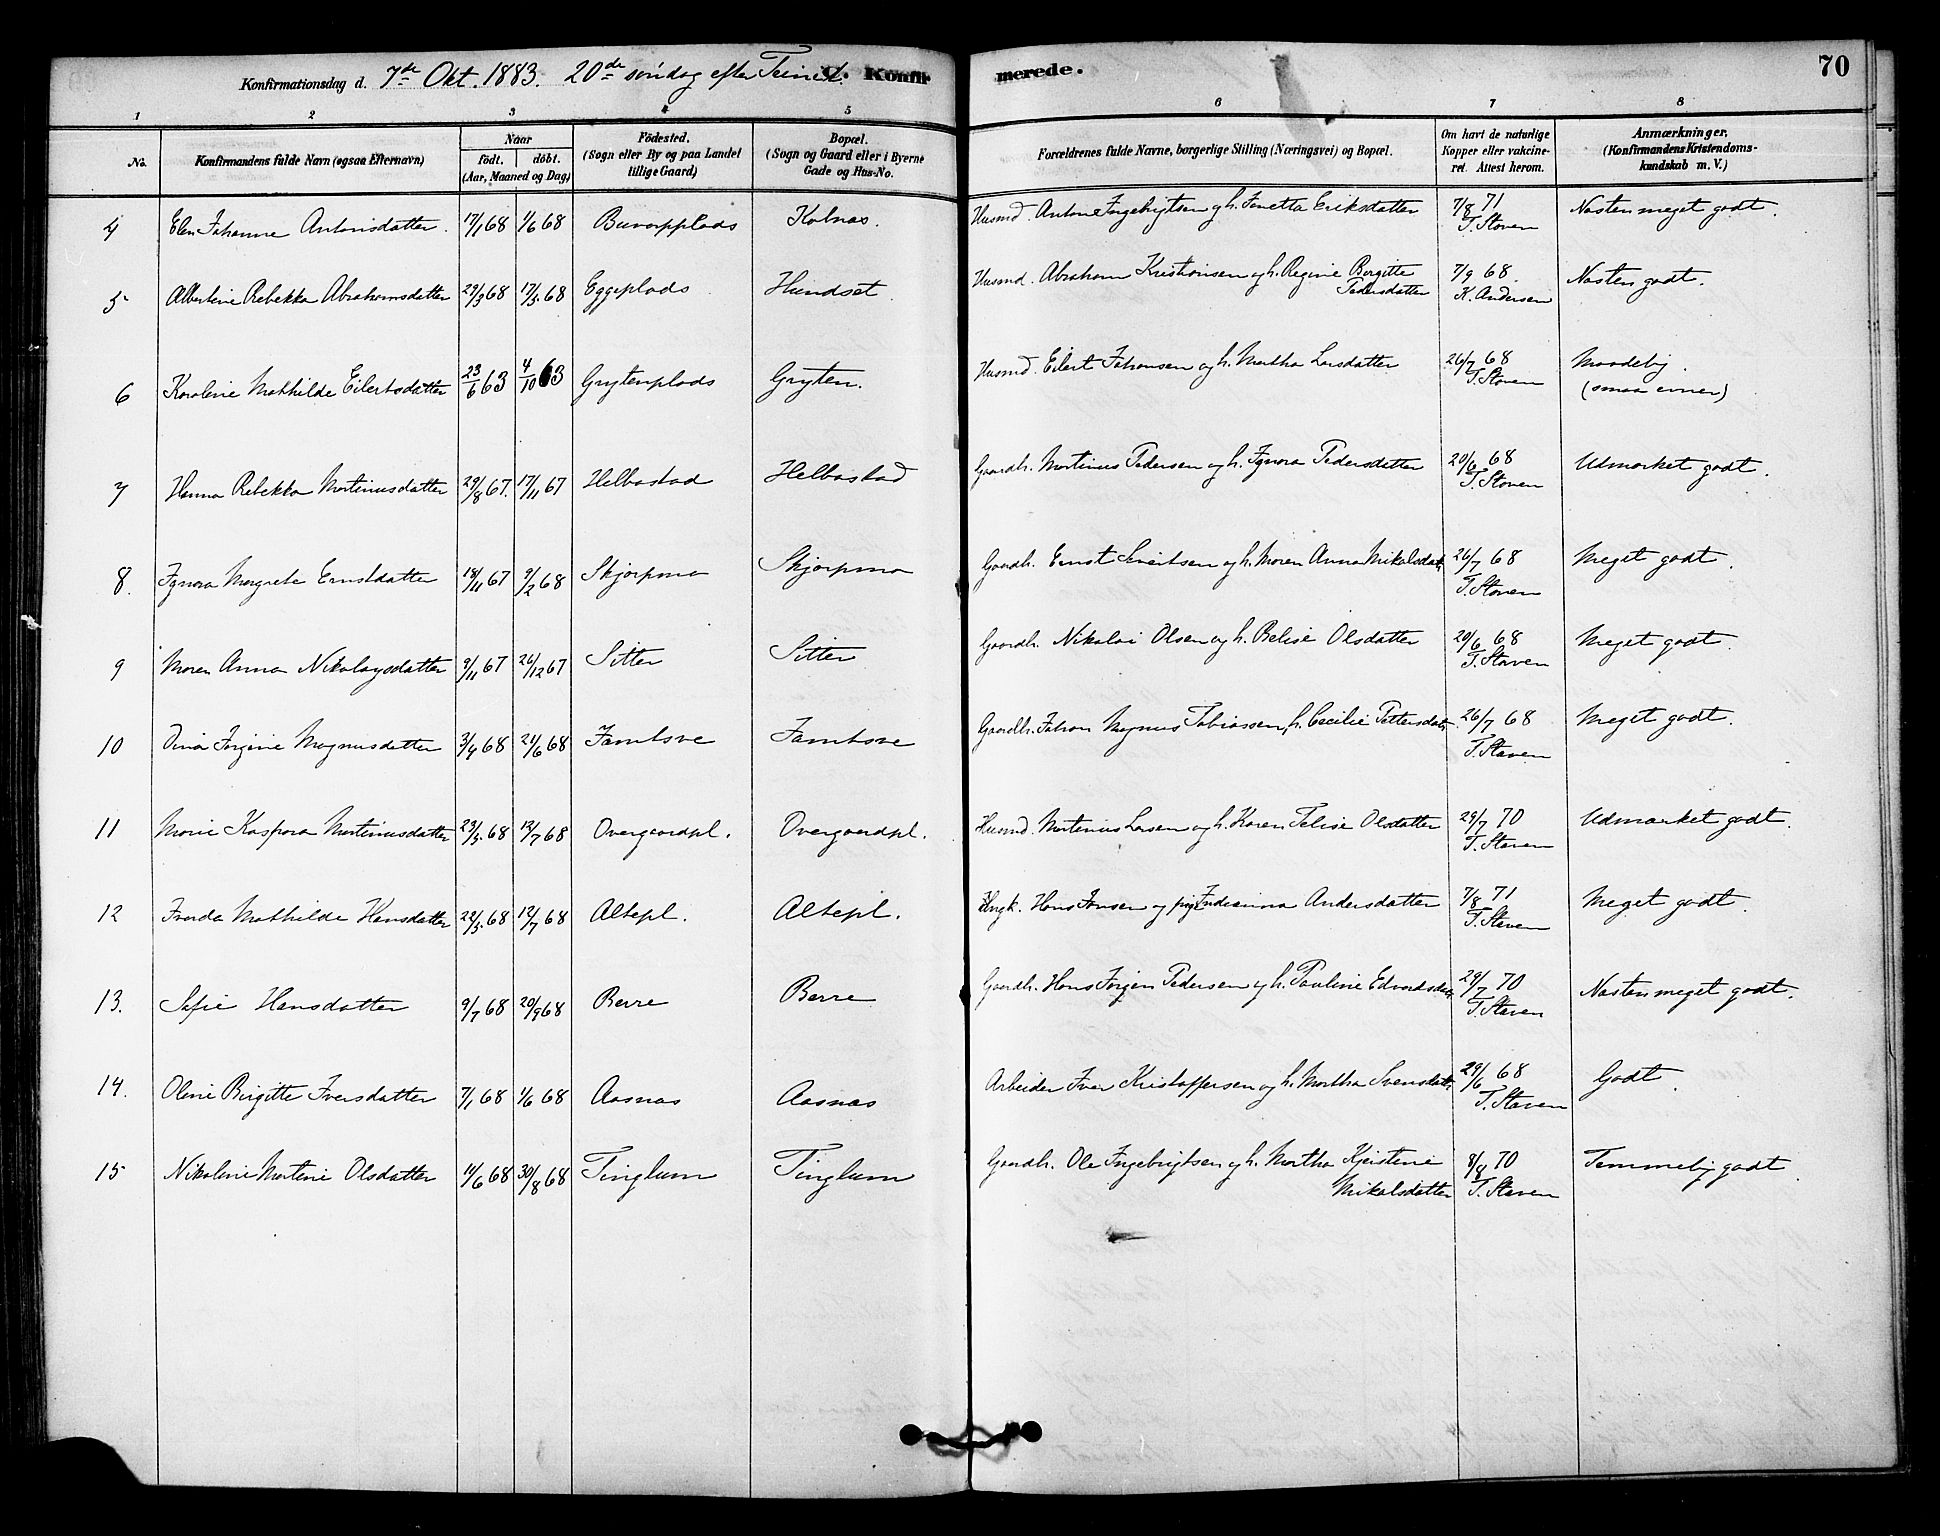 Konfirmationsdag d. 7de Okt. 1883. 20de søndag efter Trinit. C. Konfirmerede. 70
1 2 3 4 5 6 7 8
No. Konfirmandens fulde Navn (ogsaa Efternavn) Naar födt. döbt. (Aar, Maaned og Dag) Födested. (Sogn eller By og paa Landet tillige Gaard) Bopæl. (Sogn og Gaard eller i Byerne Gade og Hus-No. Forældrenes fulde Navne, borgerlige Stilling (Næringsvei) og Bopæl. Om havt de naturlige Kopper eller vakcineret. Attest herom. Anmærkninger, (Konfirmandens Kristendomskundskab m. V.)
4 Elen Johanne Antonisdatter. 17/1 68 1/6 68 Buvarpplads Kolnas. Husmd. Antone Ingebrigtsen og h. Jenetta Eriksdatter 7/8 71 T. Staven Næsten meget godt.
5 Albertine Rebekka Abrahamsdatter 29/3 68 17/5 68 Eggeplads Hundset. Husmd. Abraham Kristiansen og h. Regine Birgitte Pedersdatter 7/9 68. K. Andersen Næsten godt.
6 Karoline Mathilde Eilertsdatter 23/6 63 4/10 63 Grytenplads Gryten. Husmd. Eilert Johansen og h. Martha Larsdatter 26/7 68 T. Staven Maadelig. (smaa evner)
7 Hanna Rebekka Martinusdatter 29/8 67. 17/11 67 Helbostad Helbostad Gaardb. Martinus Pedersen og h. Ignora Pedersdatter 20/6 68 T. Staven Udmærket godt.
8. Ignora Margrete Ernstdatter 18/11 67 9/2 68 Skjærpmo Skjærpmo Gaardb. Ernst Sivertsen og h. Maren Anna Nikolsdatr. 26/7 68 T. Staven Meget godt.
9 Maren Anna Nikolaysdatter 9/11 67 26/12 67 Sitter Sitter Gaardb. Nikolai Olsen og h. Belise Olsdatter 20/6 68 T. Staven Meget godt.
10 Dina Jørgine Magnusdatter 3/4 68 21/6 68 Jamtsve Jamtsve Gaardb. Johan Magnus Tobiassen, h. Cecilie Pettersdatr. 26/7 68 T. Staven Meget godt.
11 Marie Kaspara Martinusdatter 23/5 68 12/7 68 Overgaardpl. Overgaardpl. Husmd. Martinus Larsen og h. Karen Felise Olsdatter 29/7 70 T. Staven Udmærket godt.
12 Iverda Mathilde Hansdatter 22/5 68 12/7 68 Altepl. Altepl. Ungk. Hans Jonsen og pige Indianna Andersdatter 7/8 71 T. Staven Meget godt.
13. Sofie Hansdatter 9/7 68 20/9 68 Berre Berre Gaardb. Hans Jørgen Pedersen og h. Pauline Edvardsdatr. 29/7 70 T. Staven Næsten meget godt.
14. Oline Birgitte Iversdatter 7/1 68 1/6 68 Aasnas Aasnas Arbeider Iver Kristoffersen og h. Martha Svensdatr. 29/6 68 T. Staven Godt.
15 Nikoline Martine Olsdatter 11/6 68 30/8 68 Tinglum Tinglum Gaardb. Ole Ingebrigtsen og h. Martha Kjerstine Mikalsdatter 8/8 70 T. Staven Temmelig godt.